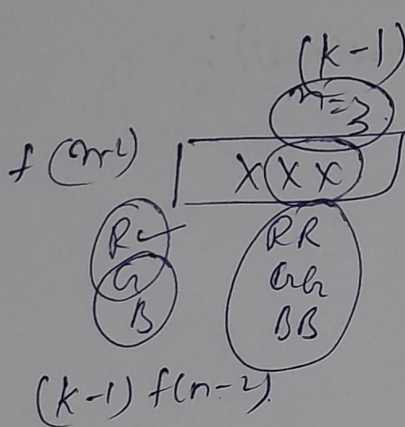 (k-1)
n=3
f(n-1)
X X X
R RR
G GG
B BB
(k-1) f(n-2)